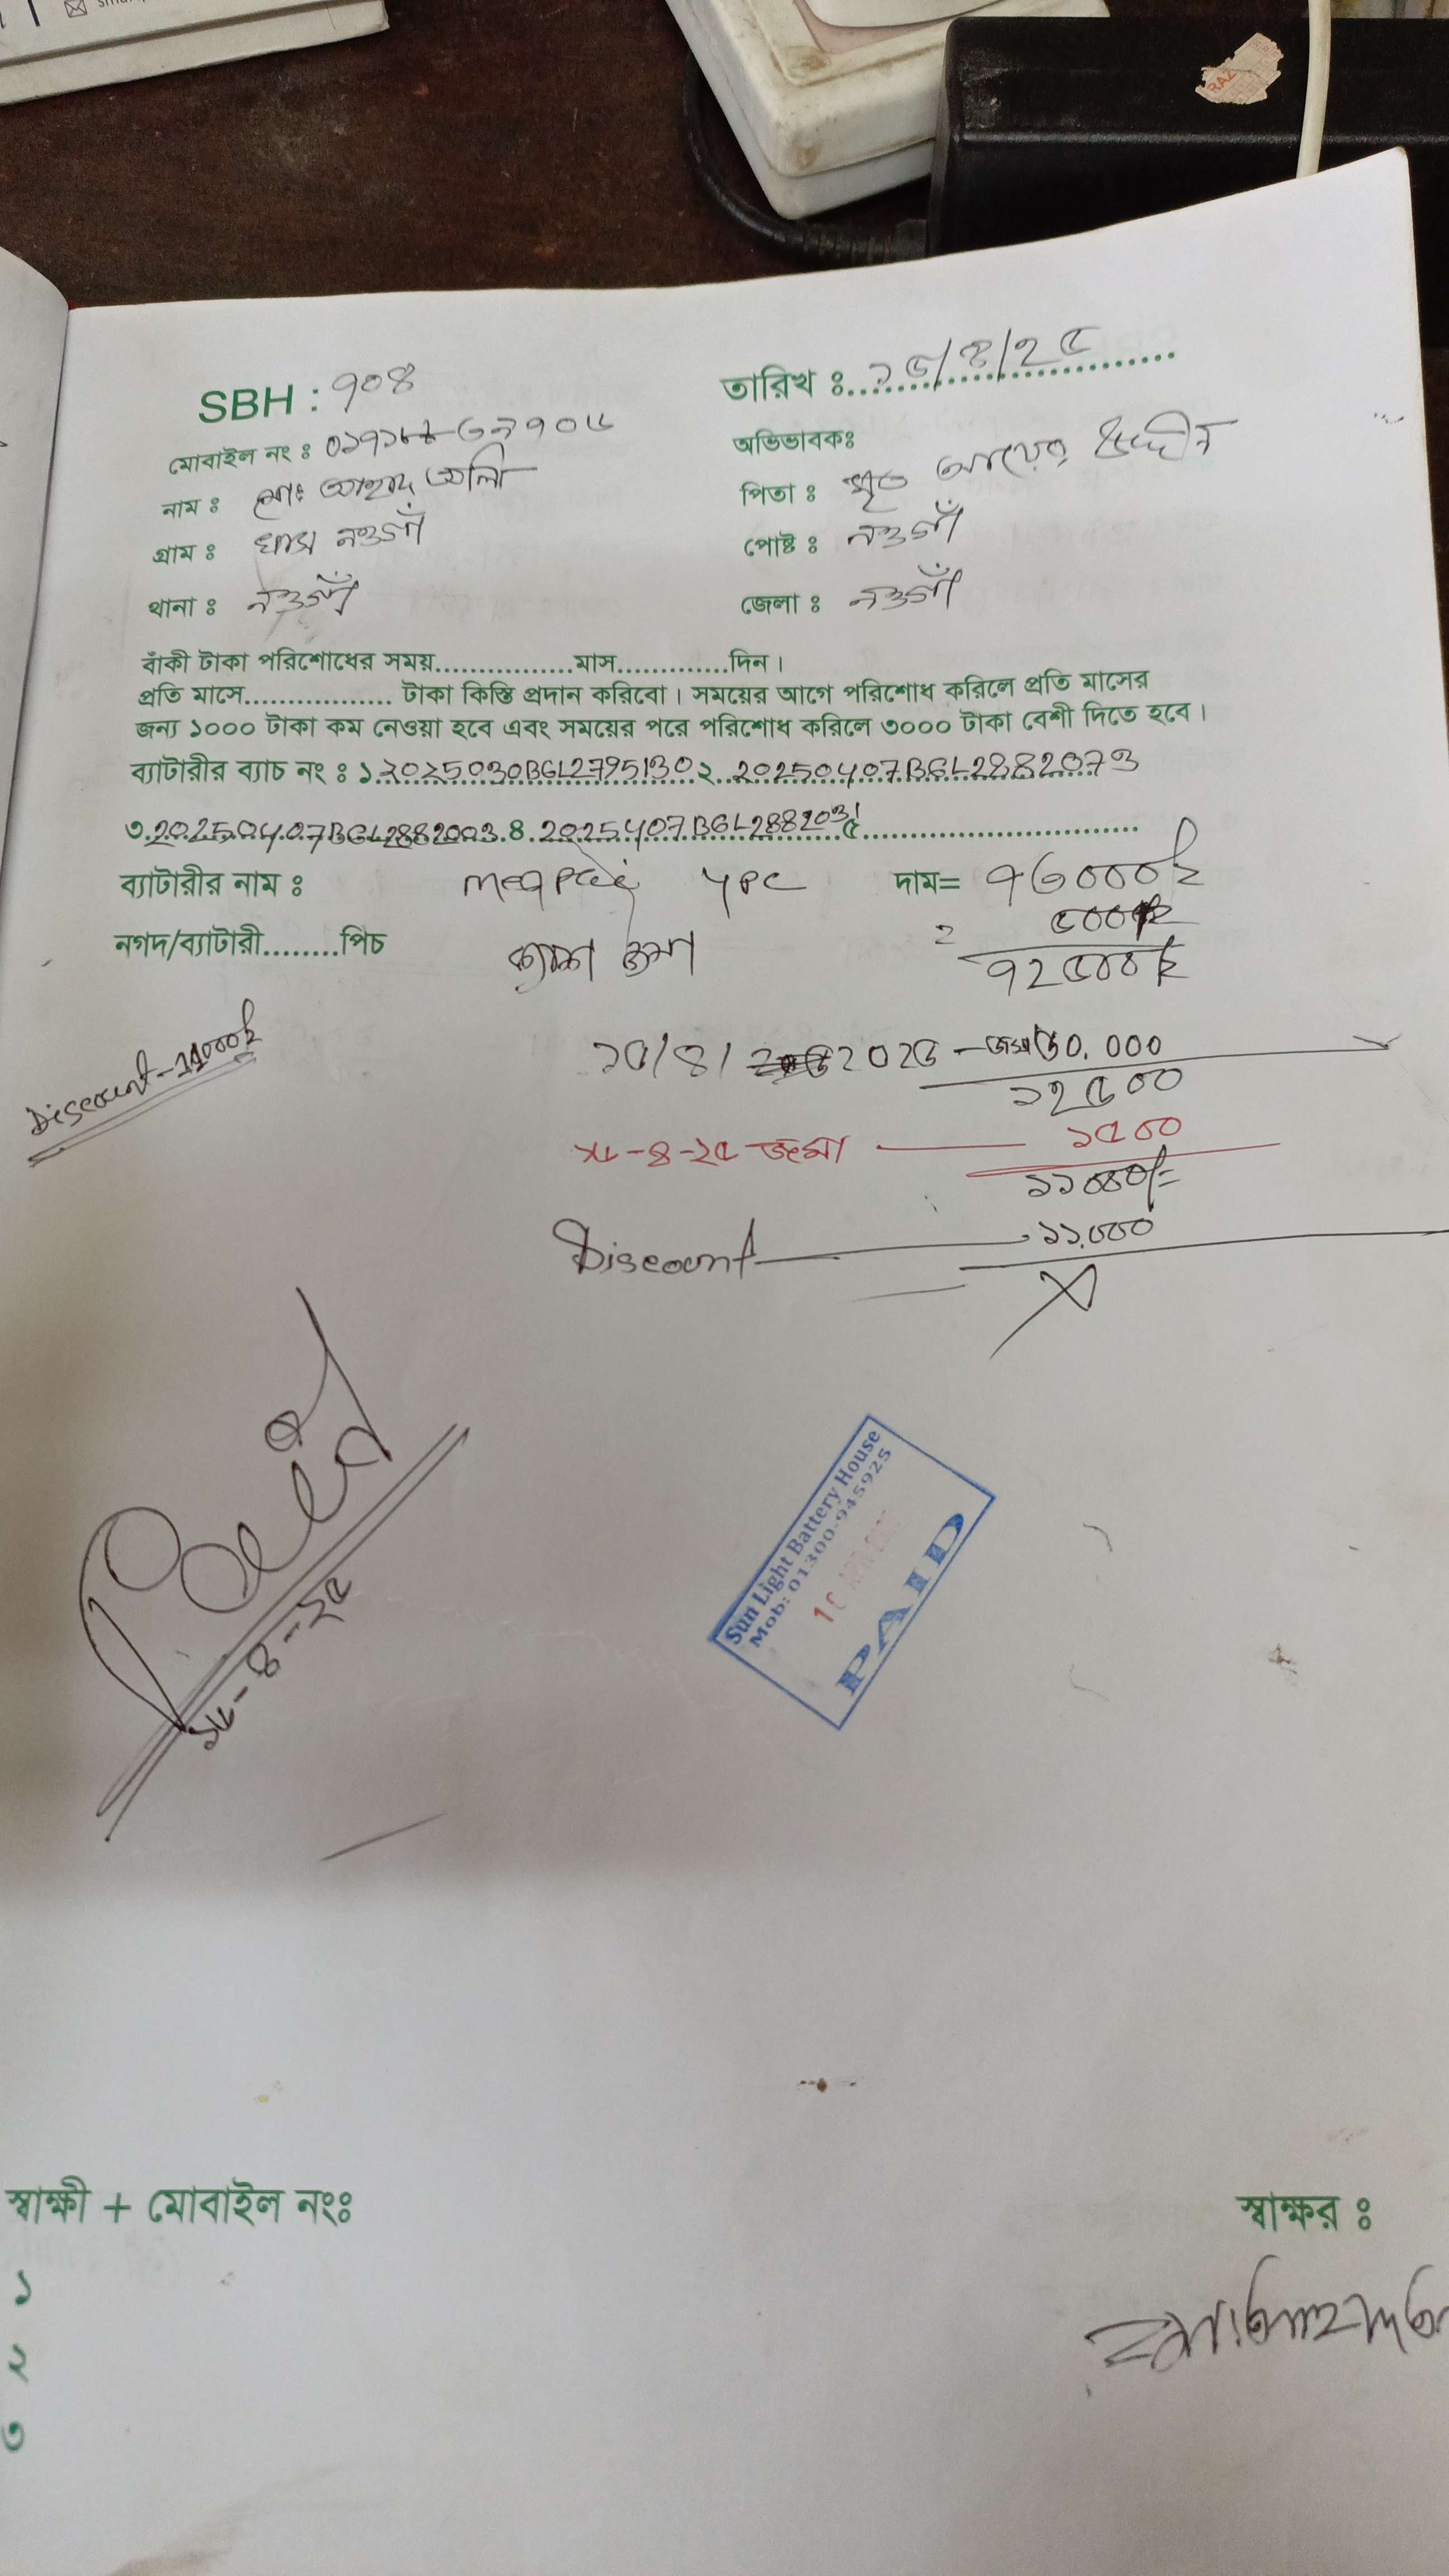 SBH : ৭০৪
তারিখ ঃ ১৫/৪/২৫
মোবাইল নং ঃ
অভিভাবকঃ
নাম ঃ মোঃ আহাদ আলী
পিতা ঃ মৃত উদ্দীন
গ্রাম ঃ খাস নওগাঁ
পোষ্ট ঃ নওগাঁ
থানা ঃ নওগাঁ
জেলা ঃ নওগাঁ
বাঁকী টাকা পরিশোধের সময়................মাস.............দিন।
প্রতি মাসে................. টাকা কিস্তি প্রদান করিবো। সময়ের আগে পরিশোধ করিলে প্রতি মাসের
জন্য ১০০০ টাকা কম নেওয়া হবে এবং সময়ের পরে পরিশোধ করিলে ৩০০০ টাকা বেশী দিতে হবে।
ব্যাটারীর ব্যাচ নং ঃ ১. 2025030BGL2795130 ২. 20250407BGL2882073
৩. 20250407BGL2882003 ৪. 2025407BGL2882031 ৫................................
ব্যাটারীর নাম ঃ 4PC দাম=
নগদ/ব্যাটারী........পিচ জমা
৭২৫০০/=
Discount - 11000/=
2025 - জমা 60.000
১২৫০০
১৮-৪-২৫ জমা ১৫০০
১১০০০/=
Discount ১১,০০০
Paid
১৮-৪-২৫
Sun Light Battery House
Mob: 01300-945925
PAID
স্বাক্ষী + মোবাইল নংঃ
স্বাক্ষর ঃ
১
২
৩